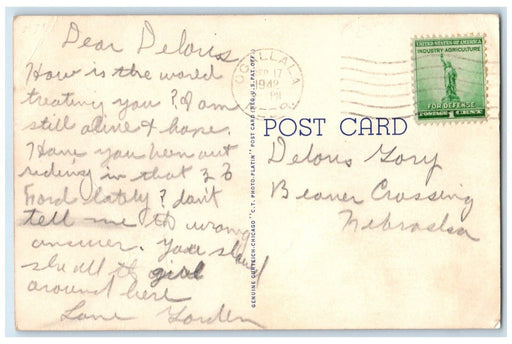 Dear Deloris
How is the world
treating you? I am
still alive & hope.
Have you been out
riding in that
Ford lately? don't
tell me th wrong
answer. You
all th girl
around here
Lane Gorden
OGALLALA
17
1942
UNITED STATES OF AMERICA
INDUSTRY AGRICULTURE
FOR DEFENSE
POSTAGE 1 CENT
GENUINE CURTEICH-CHICAGO "C.T. PHOTO-PLATIN" POST CARD (REG. U.S. PAT. OFF.)
POST CARD
Delons Gory
Beaver Crossing
Nebraska